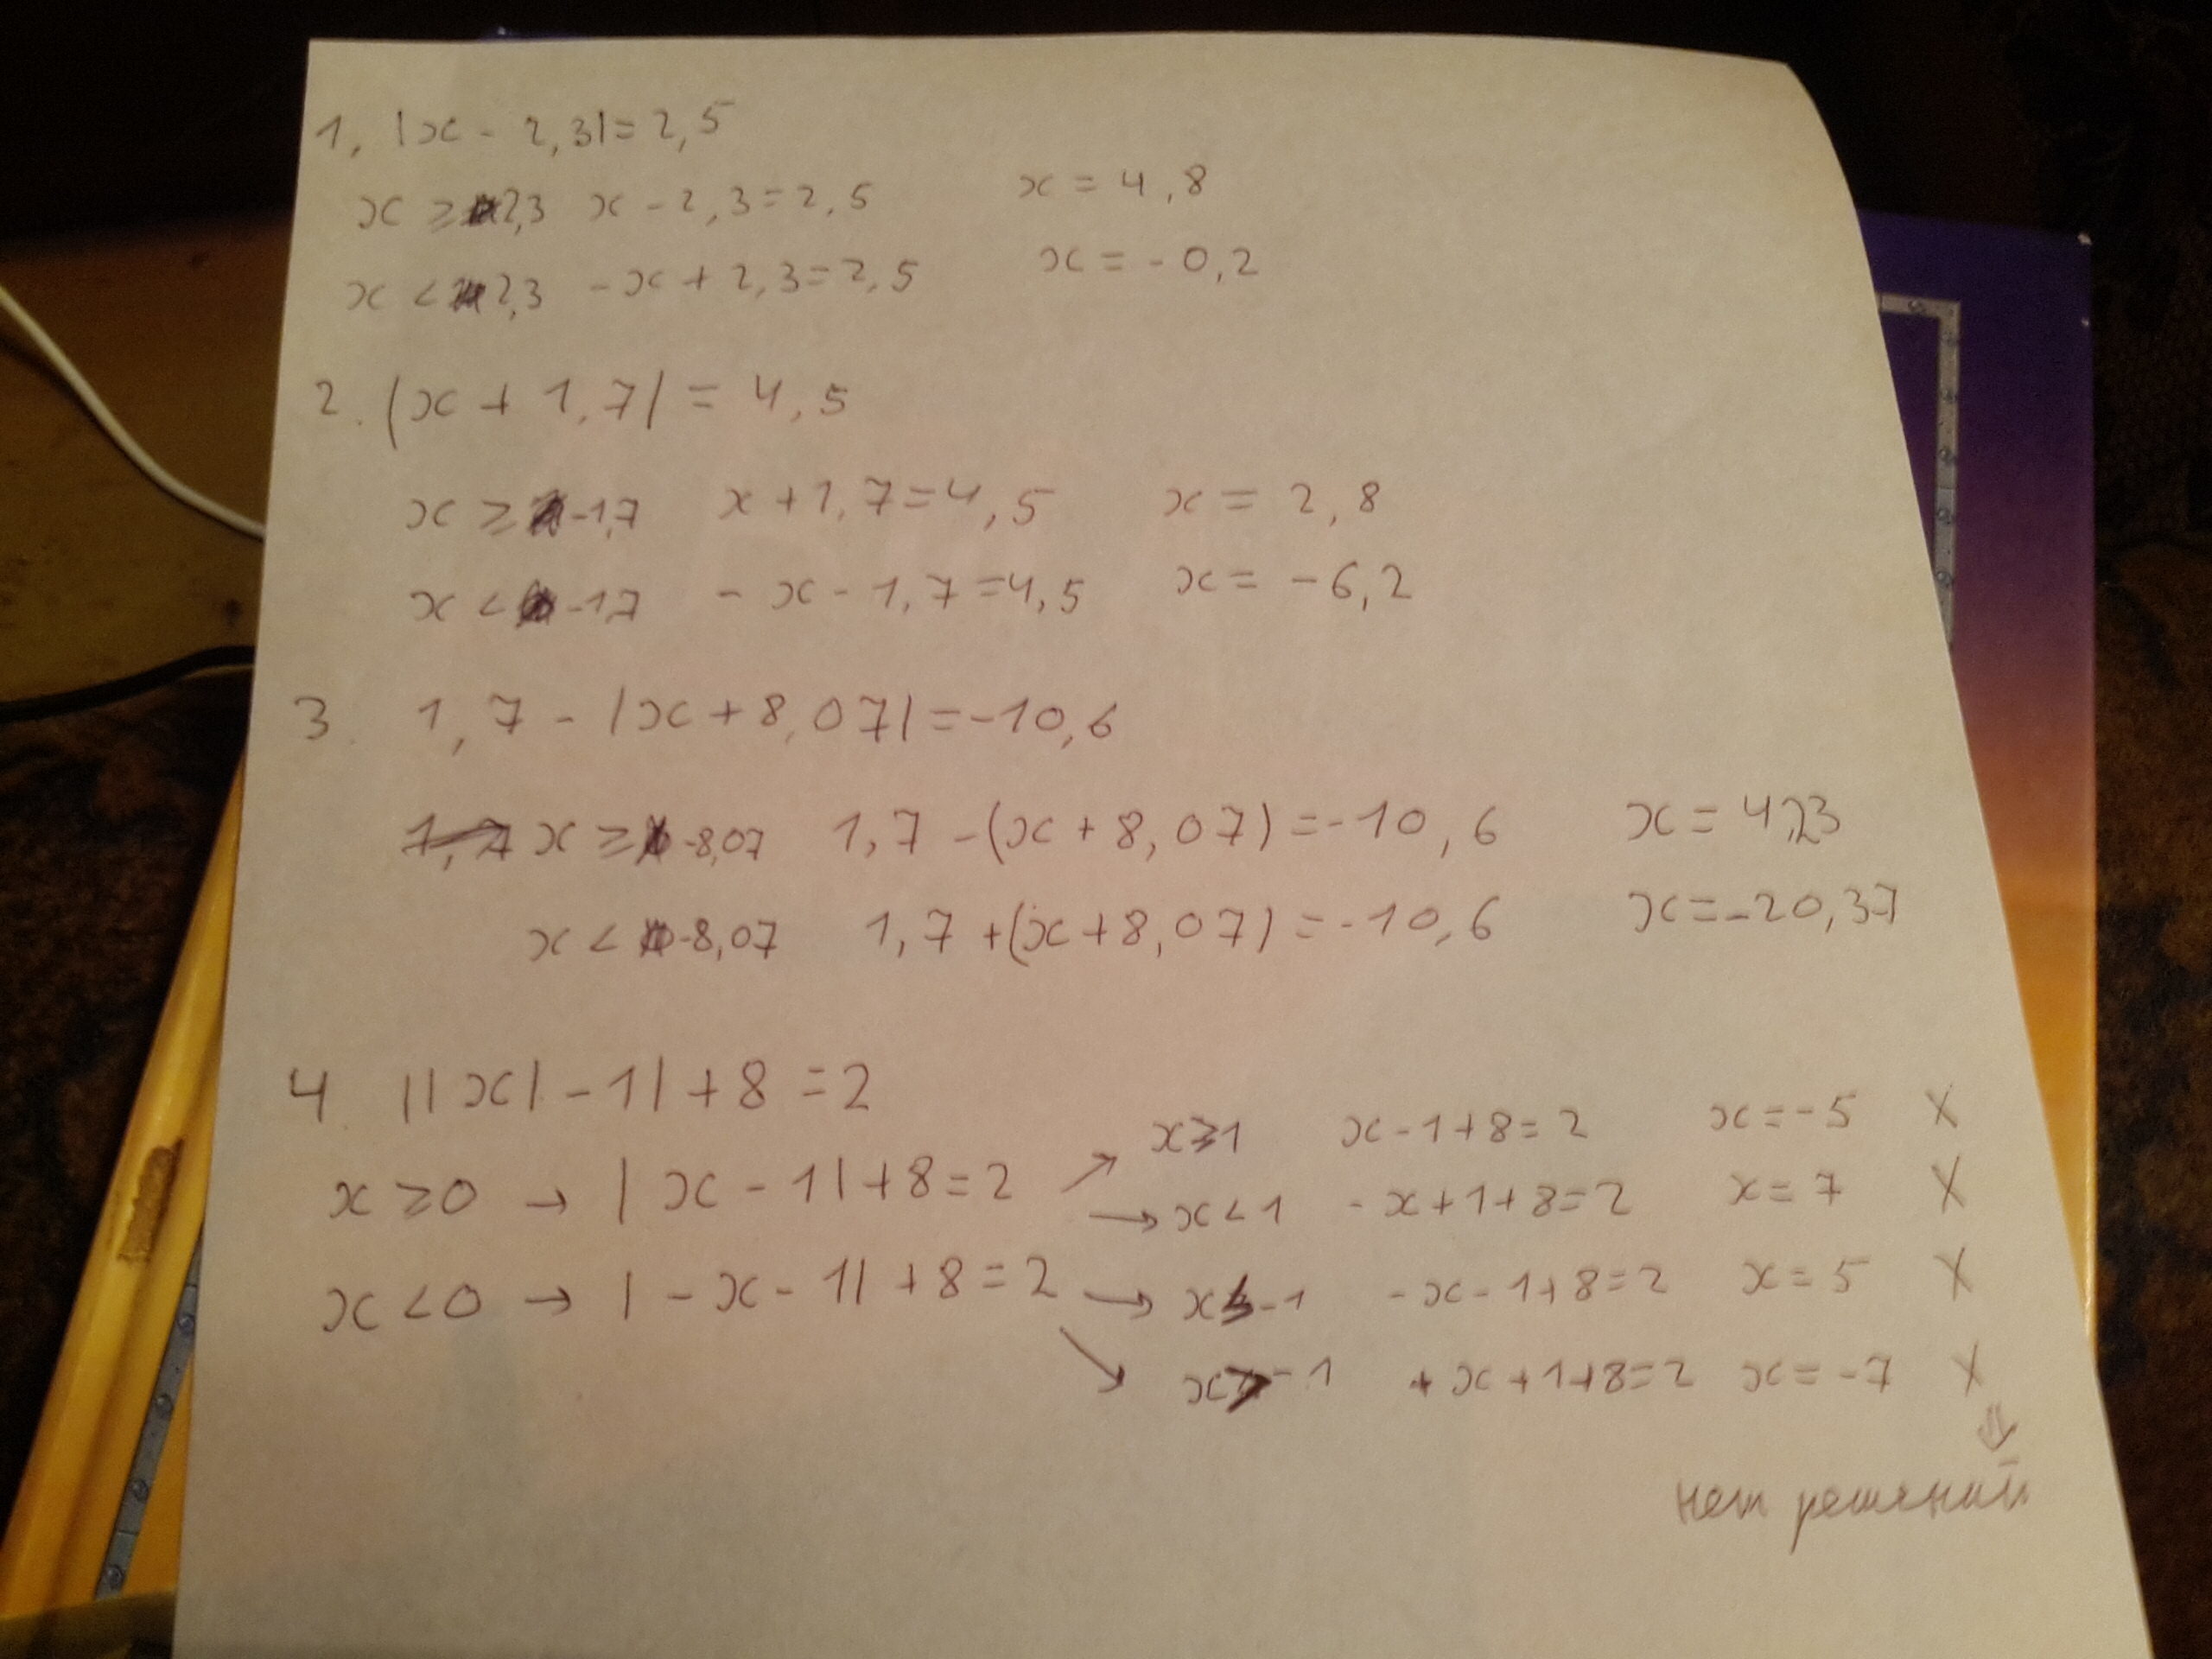 1, |x - 2,3| = 2,5
x ≥ 2,3 x - 2,3 = 2,5 x = 4,8
x < 2,3 - x + 2,3 = 2,5 x = - 0,2
2. |x + 1,7| = 4,5
x ≥ -1,7 x + 1,7 = 4,5 x = 2,8
x < -1,7 - x - 1,7 = 4,5 x = - 6,2
3 1,7 - |x + 8,07| = -10,6
1,7 x ≥ -8,07 1,7 - (x + 8,07) = -10,6 x = 4,23
x < -8,07 1,7 + (x + 8,07) = -10,6 x = -20,37
4. ||x| - 1| + 8 = 2
x ≥ 0 → |x - 1| + 8 = 2 ↗ x ≥ 1 x - 1 + 8 = 2 x = -5 X
→ x < 1 - x + 1 + 8 = 2 x = 7 X
x < 0 → |- x - 1| + 8 = 2 → x ≤ -1 - x - 1 + 8 = 2 x = 5 X
↘ x > -1 + x + 1 + 8 = 2 x = -7 X
⇓
нет решений